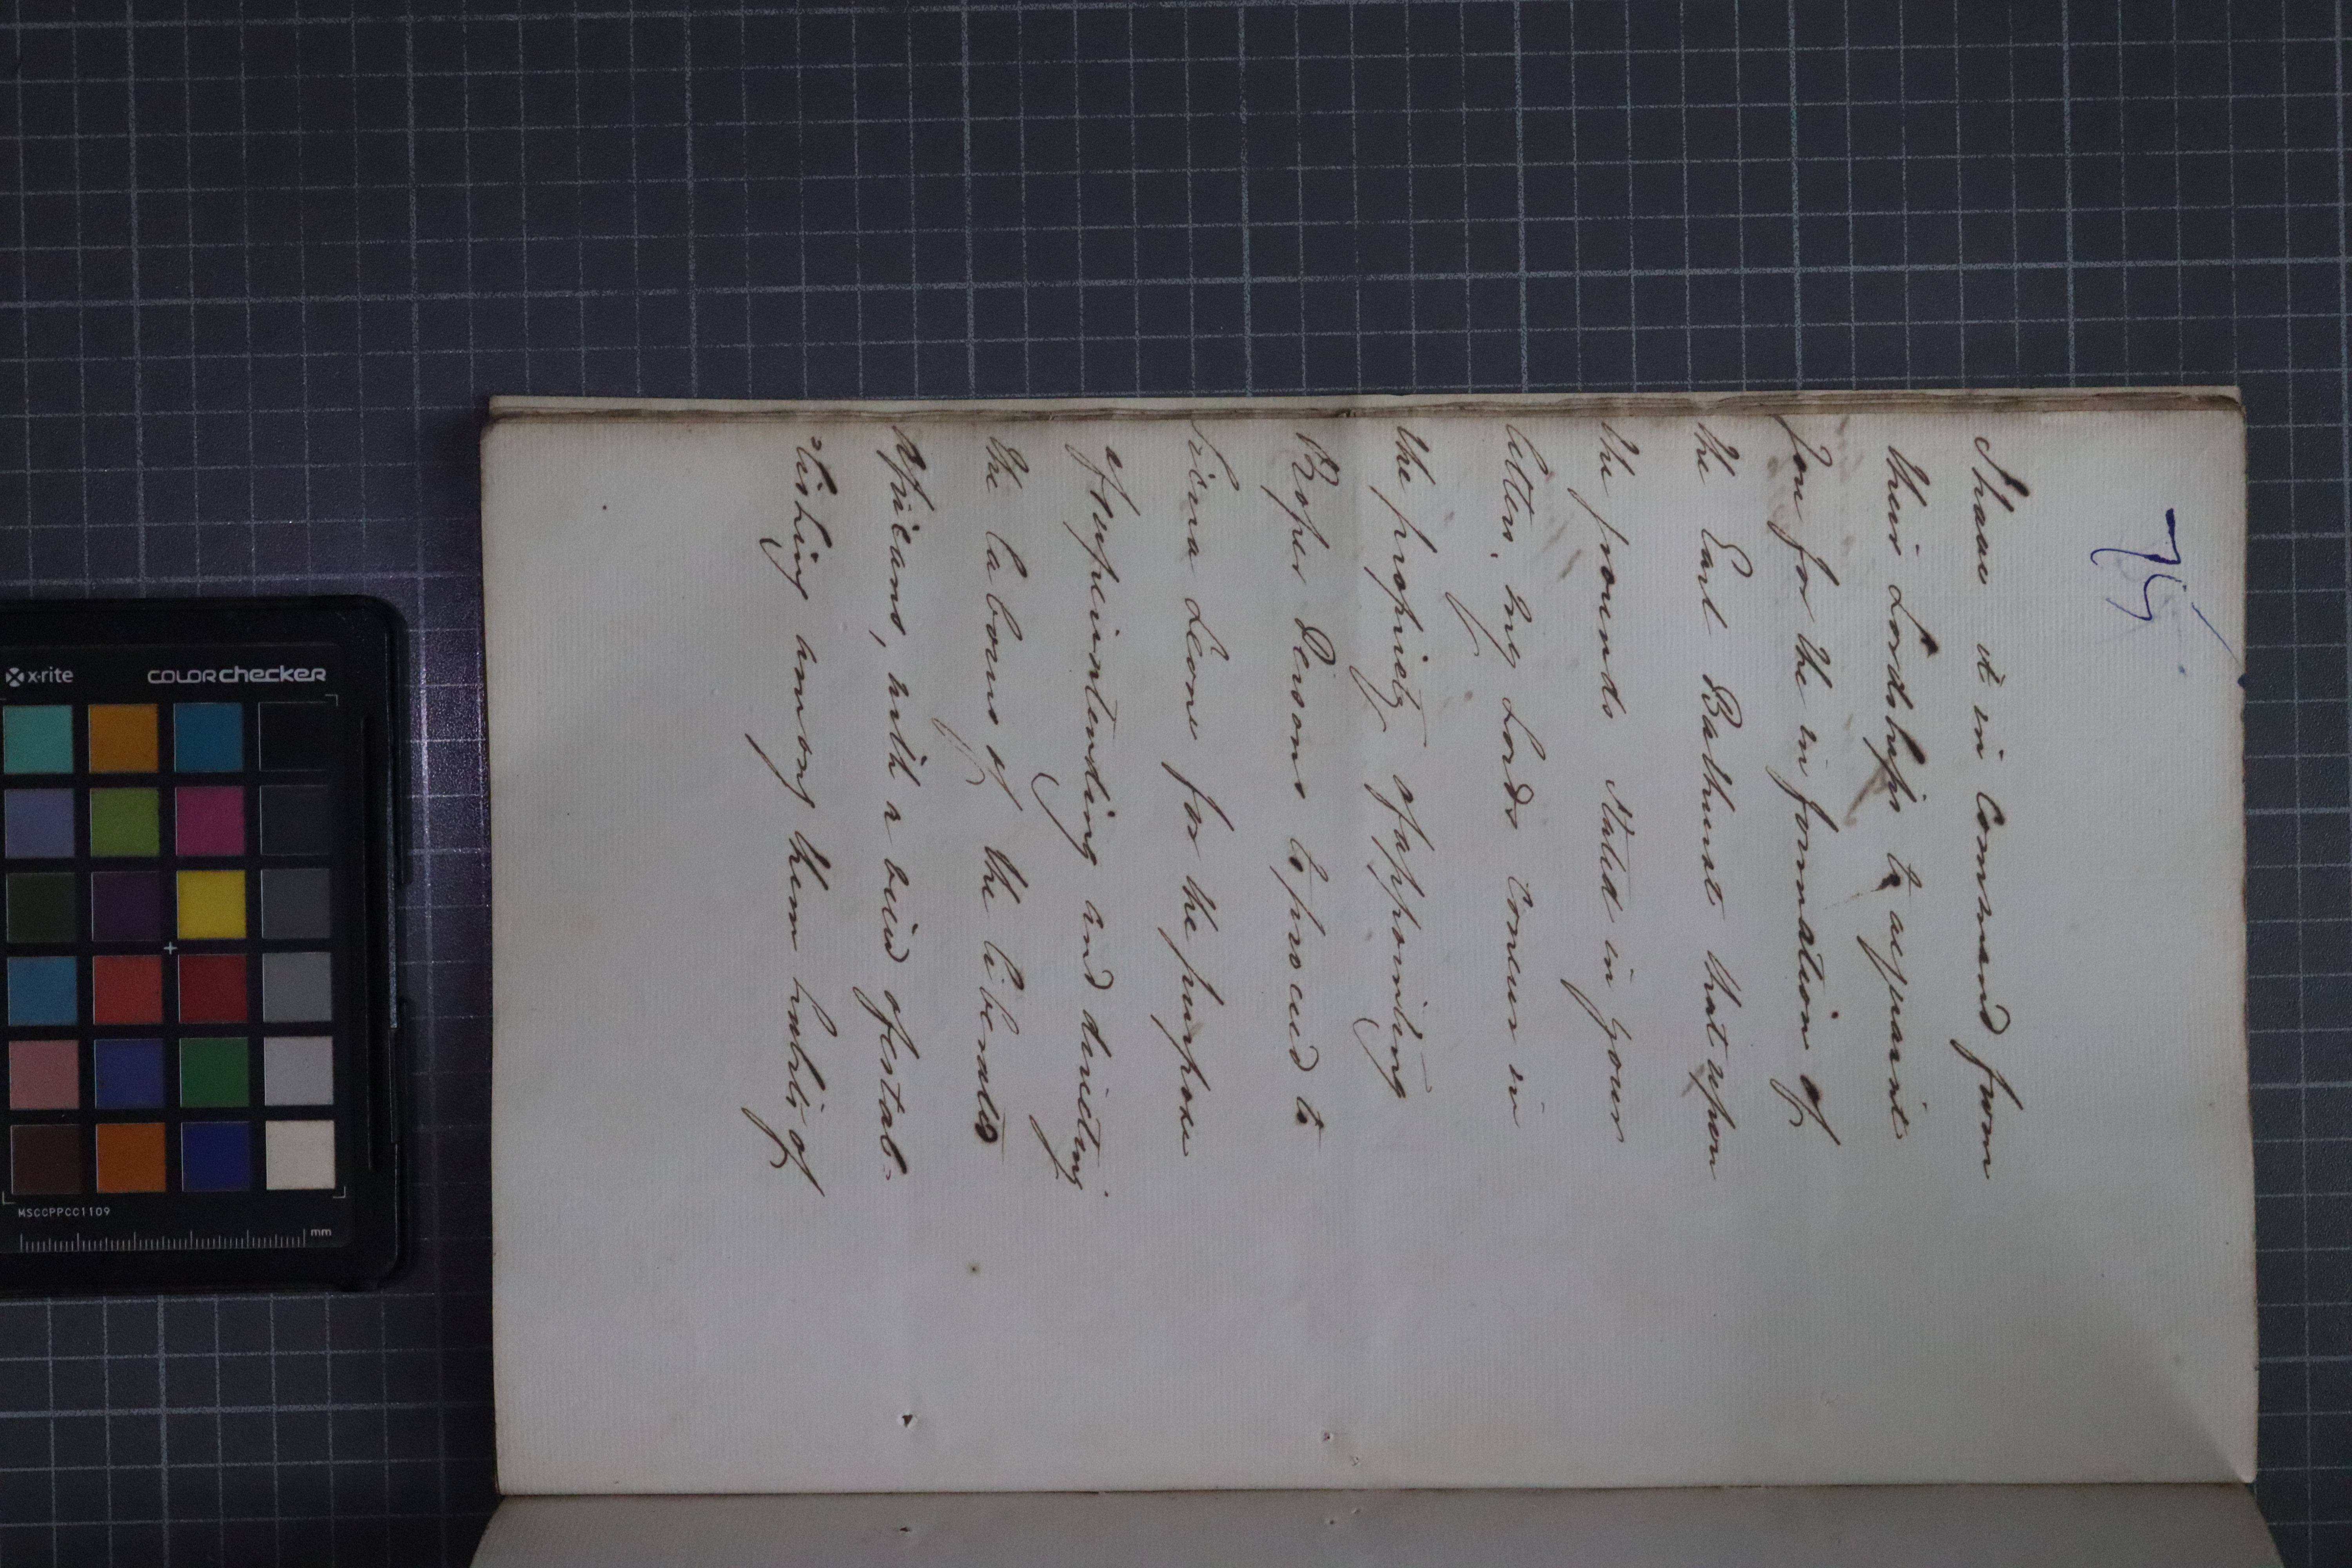 75
I have it in Command from
their Lordships to acquaint
you for the information of
the Earl Bathurst that upon
the grounds stated in your
letter, My Lords Concur in
the propriety of appointing
Proper Persons to proceed to
Sierra Leone for the purpose
of superintending and directing
the labours of the liberated
Africans, with a view of estab-
-lishing among them habits of
x-rite
COLORCHECKER
MSCCPPCC1109
mm